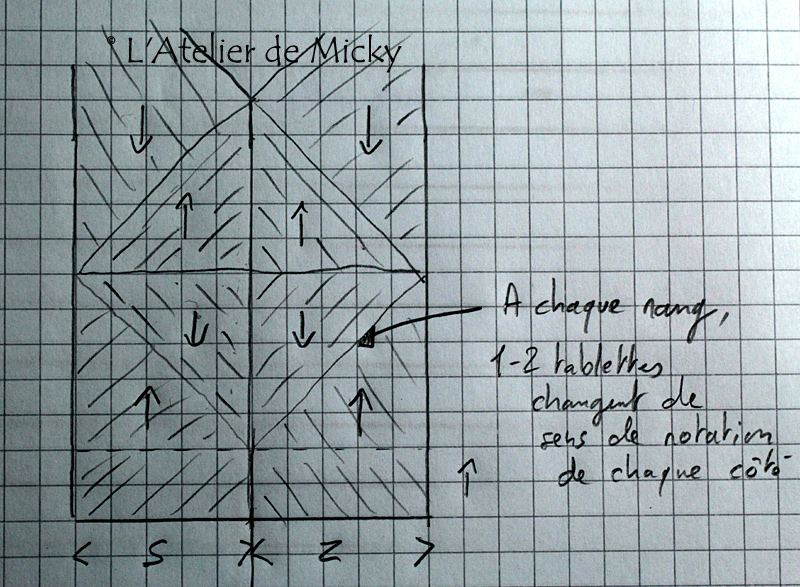 © L'Atelier de Micky
A chaque rang,
1-2 tablettes
changent de
sens de rotation
de chaque côté
< S X Z >